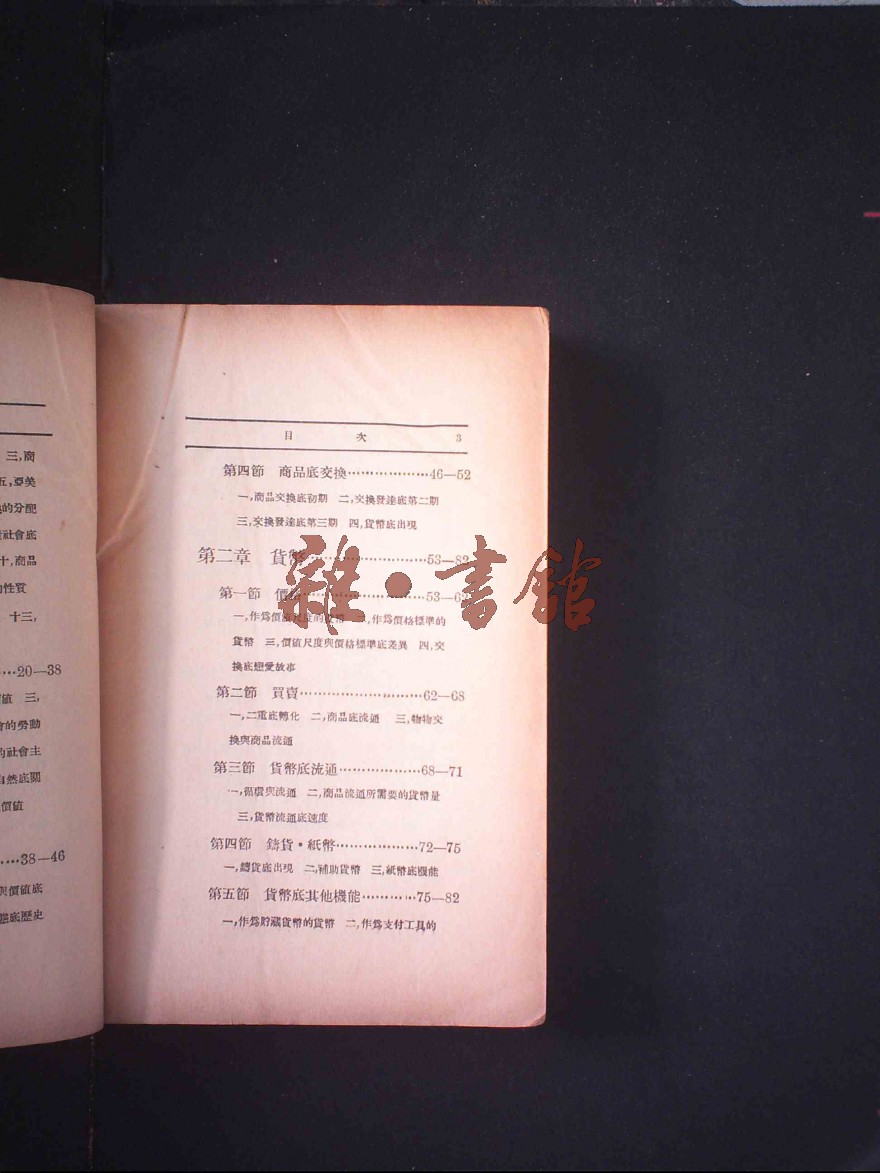 三,商
五,亞美
的分配
社會底
十,商品
的性質
十三,
…20—38
值 三,
的勞動
的社會主
自然底關
價值
…38—46
與價值底
態底歷史
目 次 3
第四節 商品底交換………………46—52
一,商品交換底初期 二,交換發達底第二期
三,交換發達底第三期 四,貨幣底出現
第二章 貨幣……………………53—82
第一節 價格……………………53—6
一,作爲價值尺度的貨幣 二,作爲價格標準的
貨幣 三,價值尺度與價格標準底差異 四,交
換底戀愛故事
第二節 買賣……………………62—68
一,二重底轉化 二,商品底流通 三,物物交
換與商品流通
第三節 貨幣底流通………………68—71
一,循環與流通 二,商品流通所需要的貨幣量
三,貨幣流通底速度
第四節 鑄貨·紙幣………………72—75
一,鑄貨底出現 二,補助貨幣 三,紙幣底機能
第五節 貨幣底其他機能…………75—82
一,作爲貯藏貨幣的貨幣 二,作爲支付工具的
雜·書館